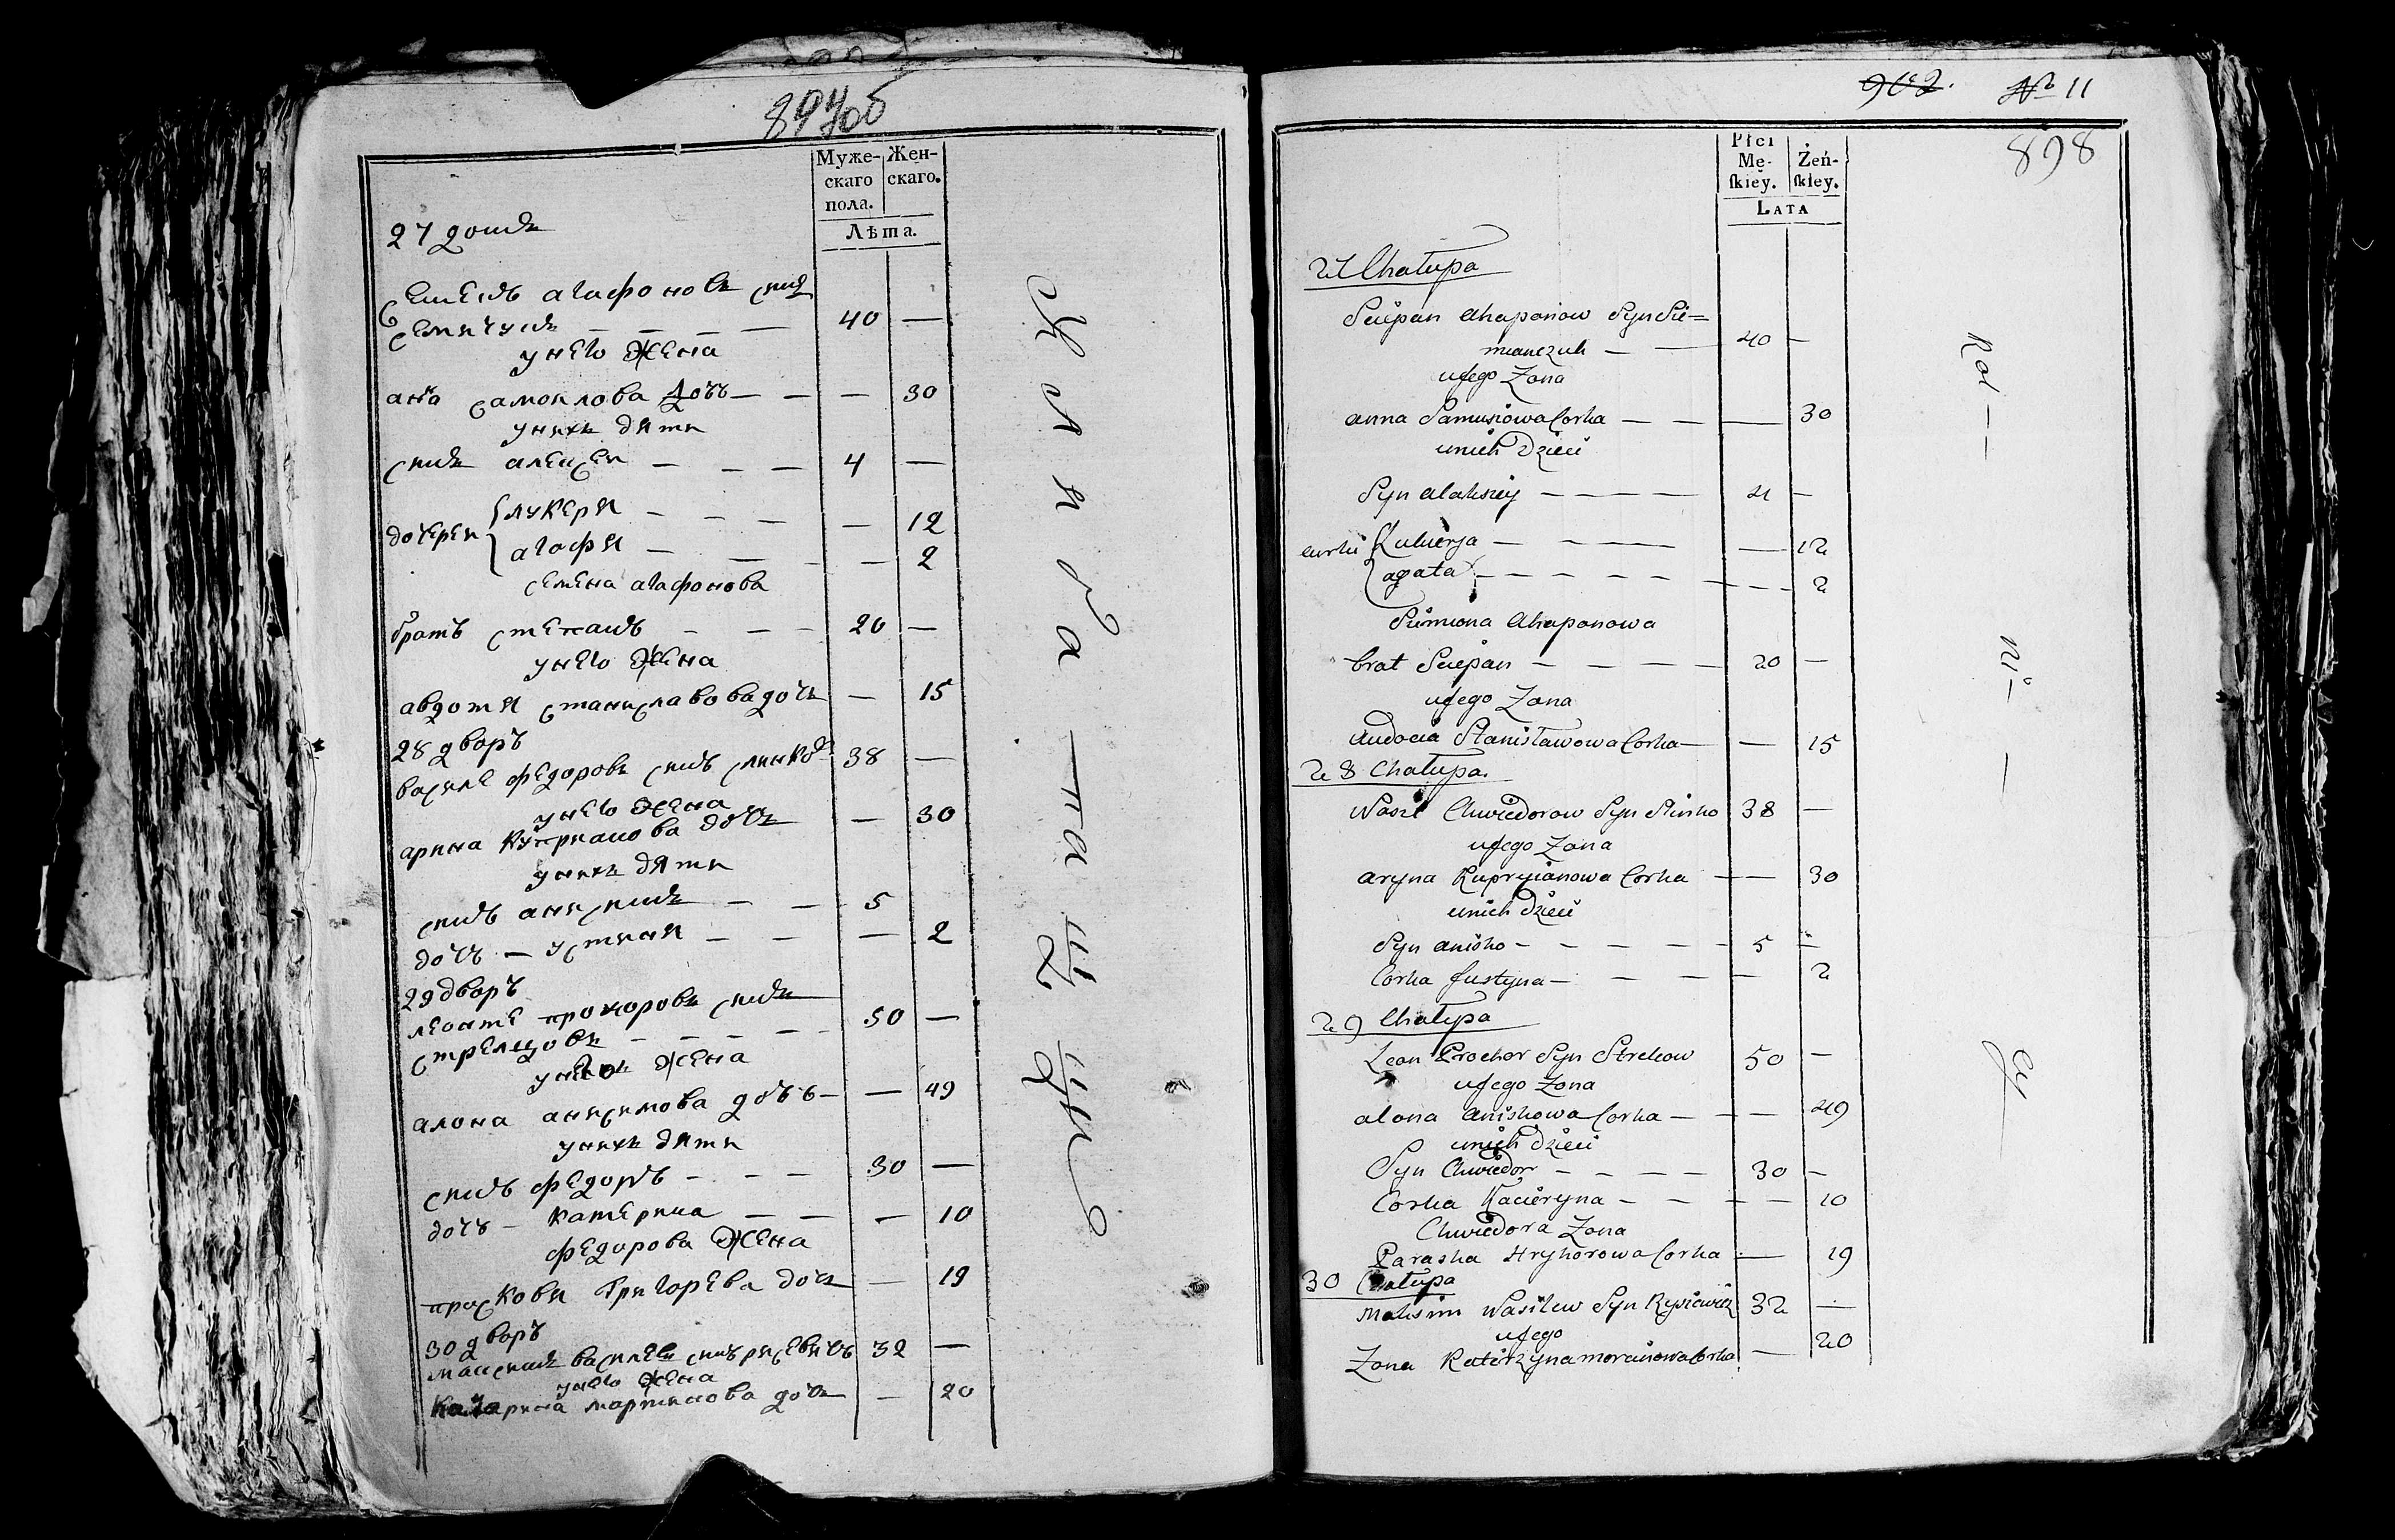 897об
Муже- Жен-
скаго скаго.
пола.
Лѣта.
27 домъ
Семенъ агафоновъ сынъ
Семичукъ — — — — 40 —
у него жена
ана самойлова дочь — — — 30
у нихъ дяти
сынъ алексей — — — 4 —
дочерей лукеря — — — — 12
агафя — — — — 2
семена агафонова
братъ степанъ — — — 20 —
у него жена
авдотя станиславова дочъ — 15
28 дворъ
василе федоровъ сынъ слинко 38 —
у него жена
арина куприанова дочъ — 30
у нихъ дяти
сынъ анисимъ — — 5
дочь — устиня — — — 2
29 дворъ
леонте прохоровъ сынъ
стрелцовъ — — — — 50 —
у него жена
алона анисимова дочь — — 49
у нихъ дяти
сынъ федоръ — — — 30 —
дочь — катерина — — — 10
федорова жена
прасковя григорева дочъ — 19
30 дворъ
максимъ василевъ сынъ рисевичъ 32 —
у него жена
катарина мартинова дочъ — 20
902. № 11
898
Płci
Mę- Żeń-
skiey. skiey.
LATA
27 Chałupa
Sciepan Ahaponow Syn Sie=
mianczuk — — 40 —
u jego Zona
anna Samusiowa Corka — — — 30
u nich Dzieci
Syn alaksiey — — — — 4 —
curki Kulierya — — — — 12
agata — — — — — — 2
Siemiona Ahaponowa
brat Sciepan — — — — 20 —
u jego Zona
Audocia Stanisławowa Corka — — 15
28 Chałupa.
Wasil Chwiedorow Syn Slinko 38 —
u jego Zona
aryna Kupryianowa Corka — — 30
u nich dzieci
Syn anisko — — — — — 5 —
Corka Justyna — — — — 2
29 Chałupa
Leon Prochor Syn Strelcow 50 —
u jego Zona
alona aniskowa Corka — — — 49
u nich dzieci
Syn Chwiedor — — — — 30 —
Corka Kacieryna — — — — 10
Chwiedora Zona
Paraska Hryhorowa Corka — 19
30 Chałupa
Maksim Wasilew Syn Rysiewicz 32 —
u jego
Zona Katerzyna morcinowa Corka — 20